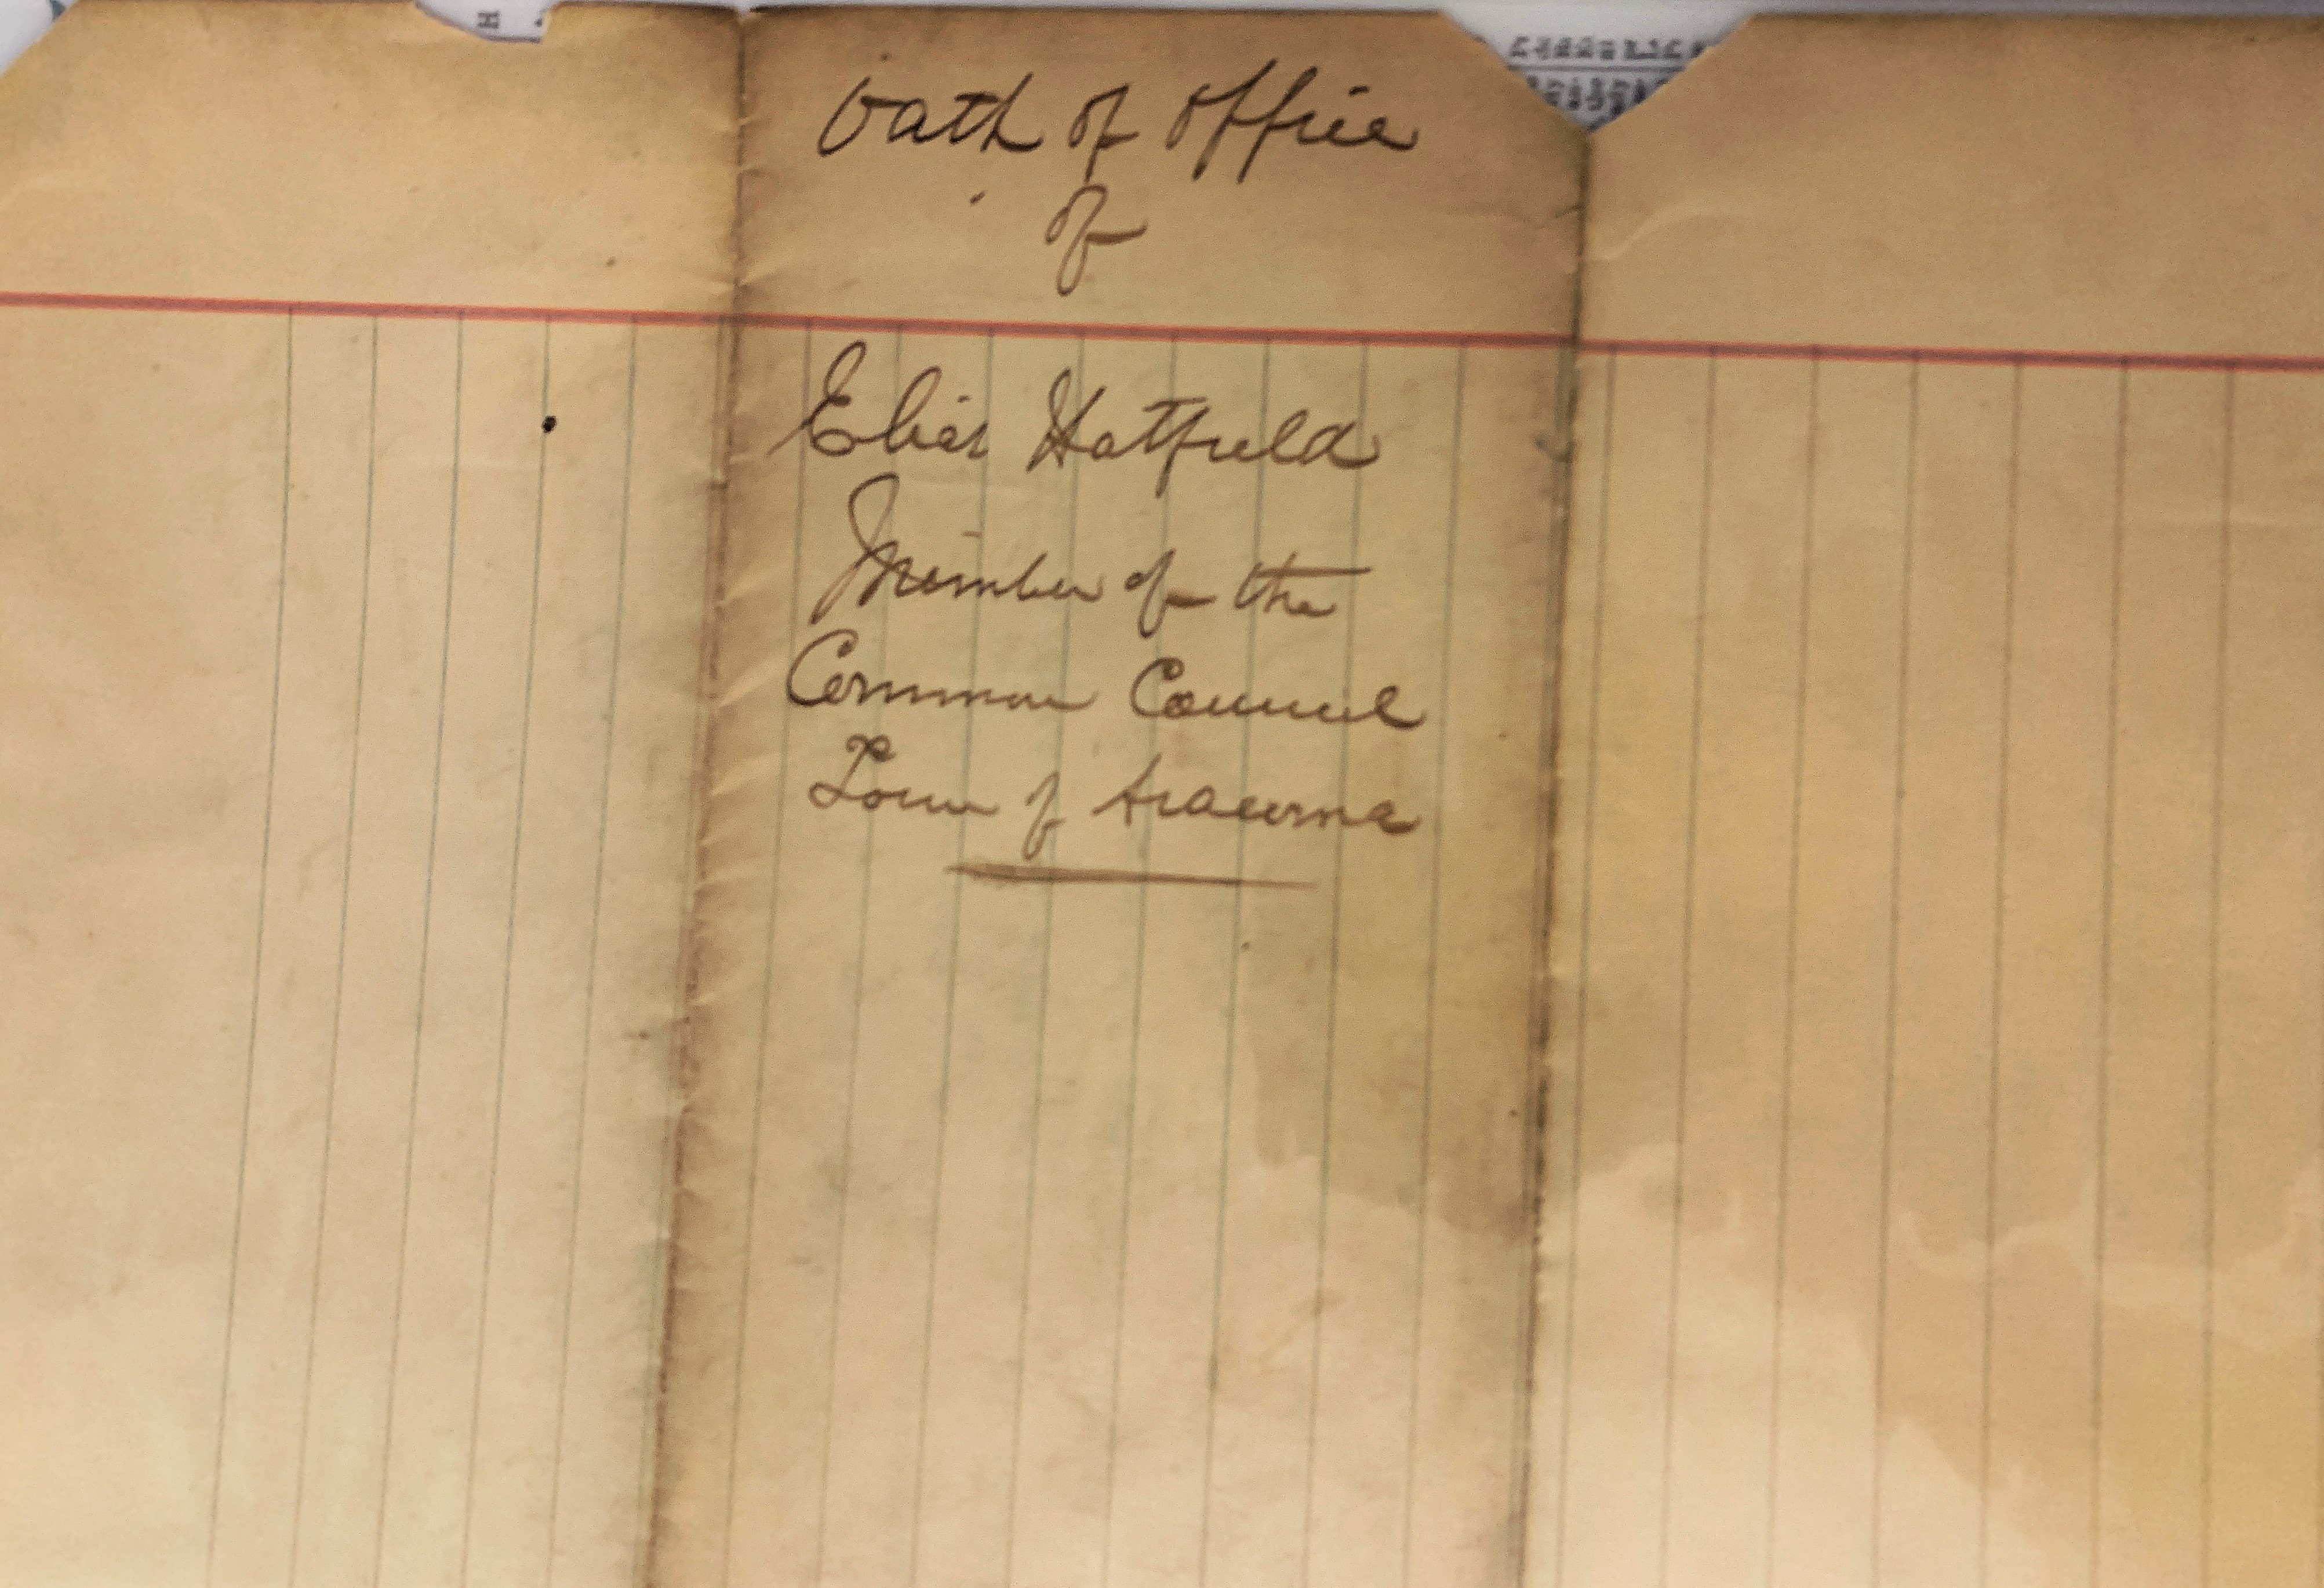 Oath of Office
of
Elias Hatfield
Member of the
Common Council
Town of Aracoma